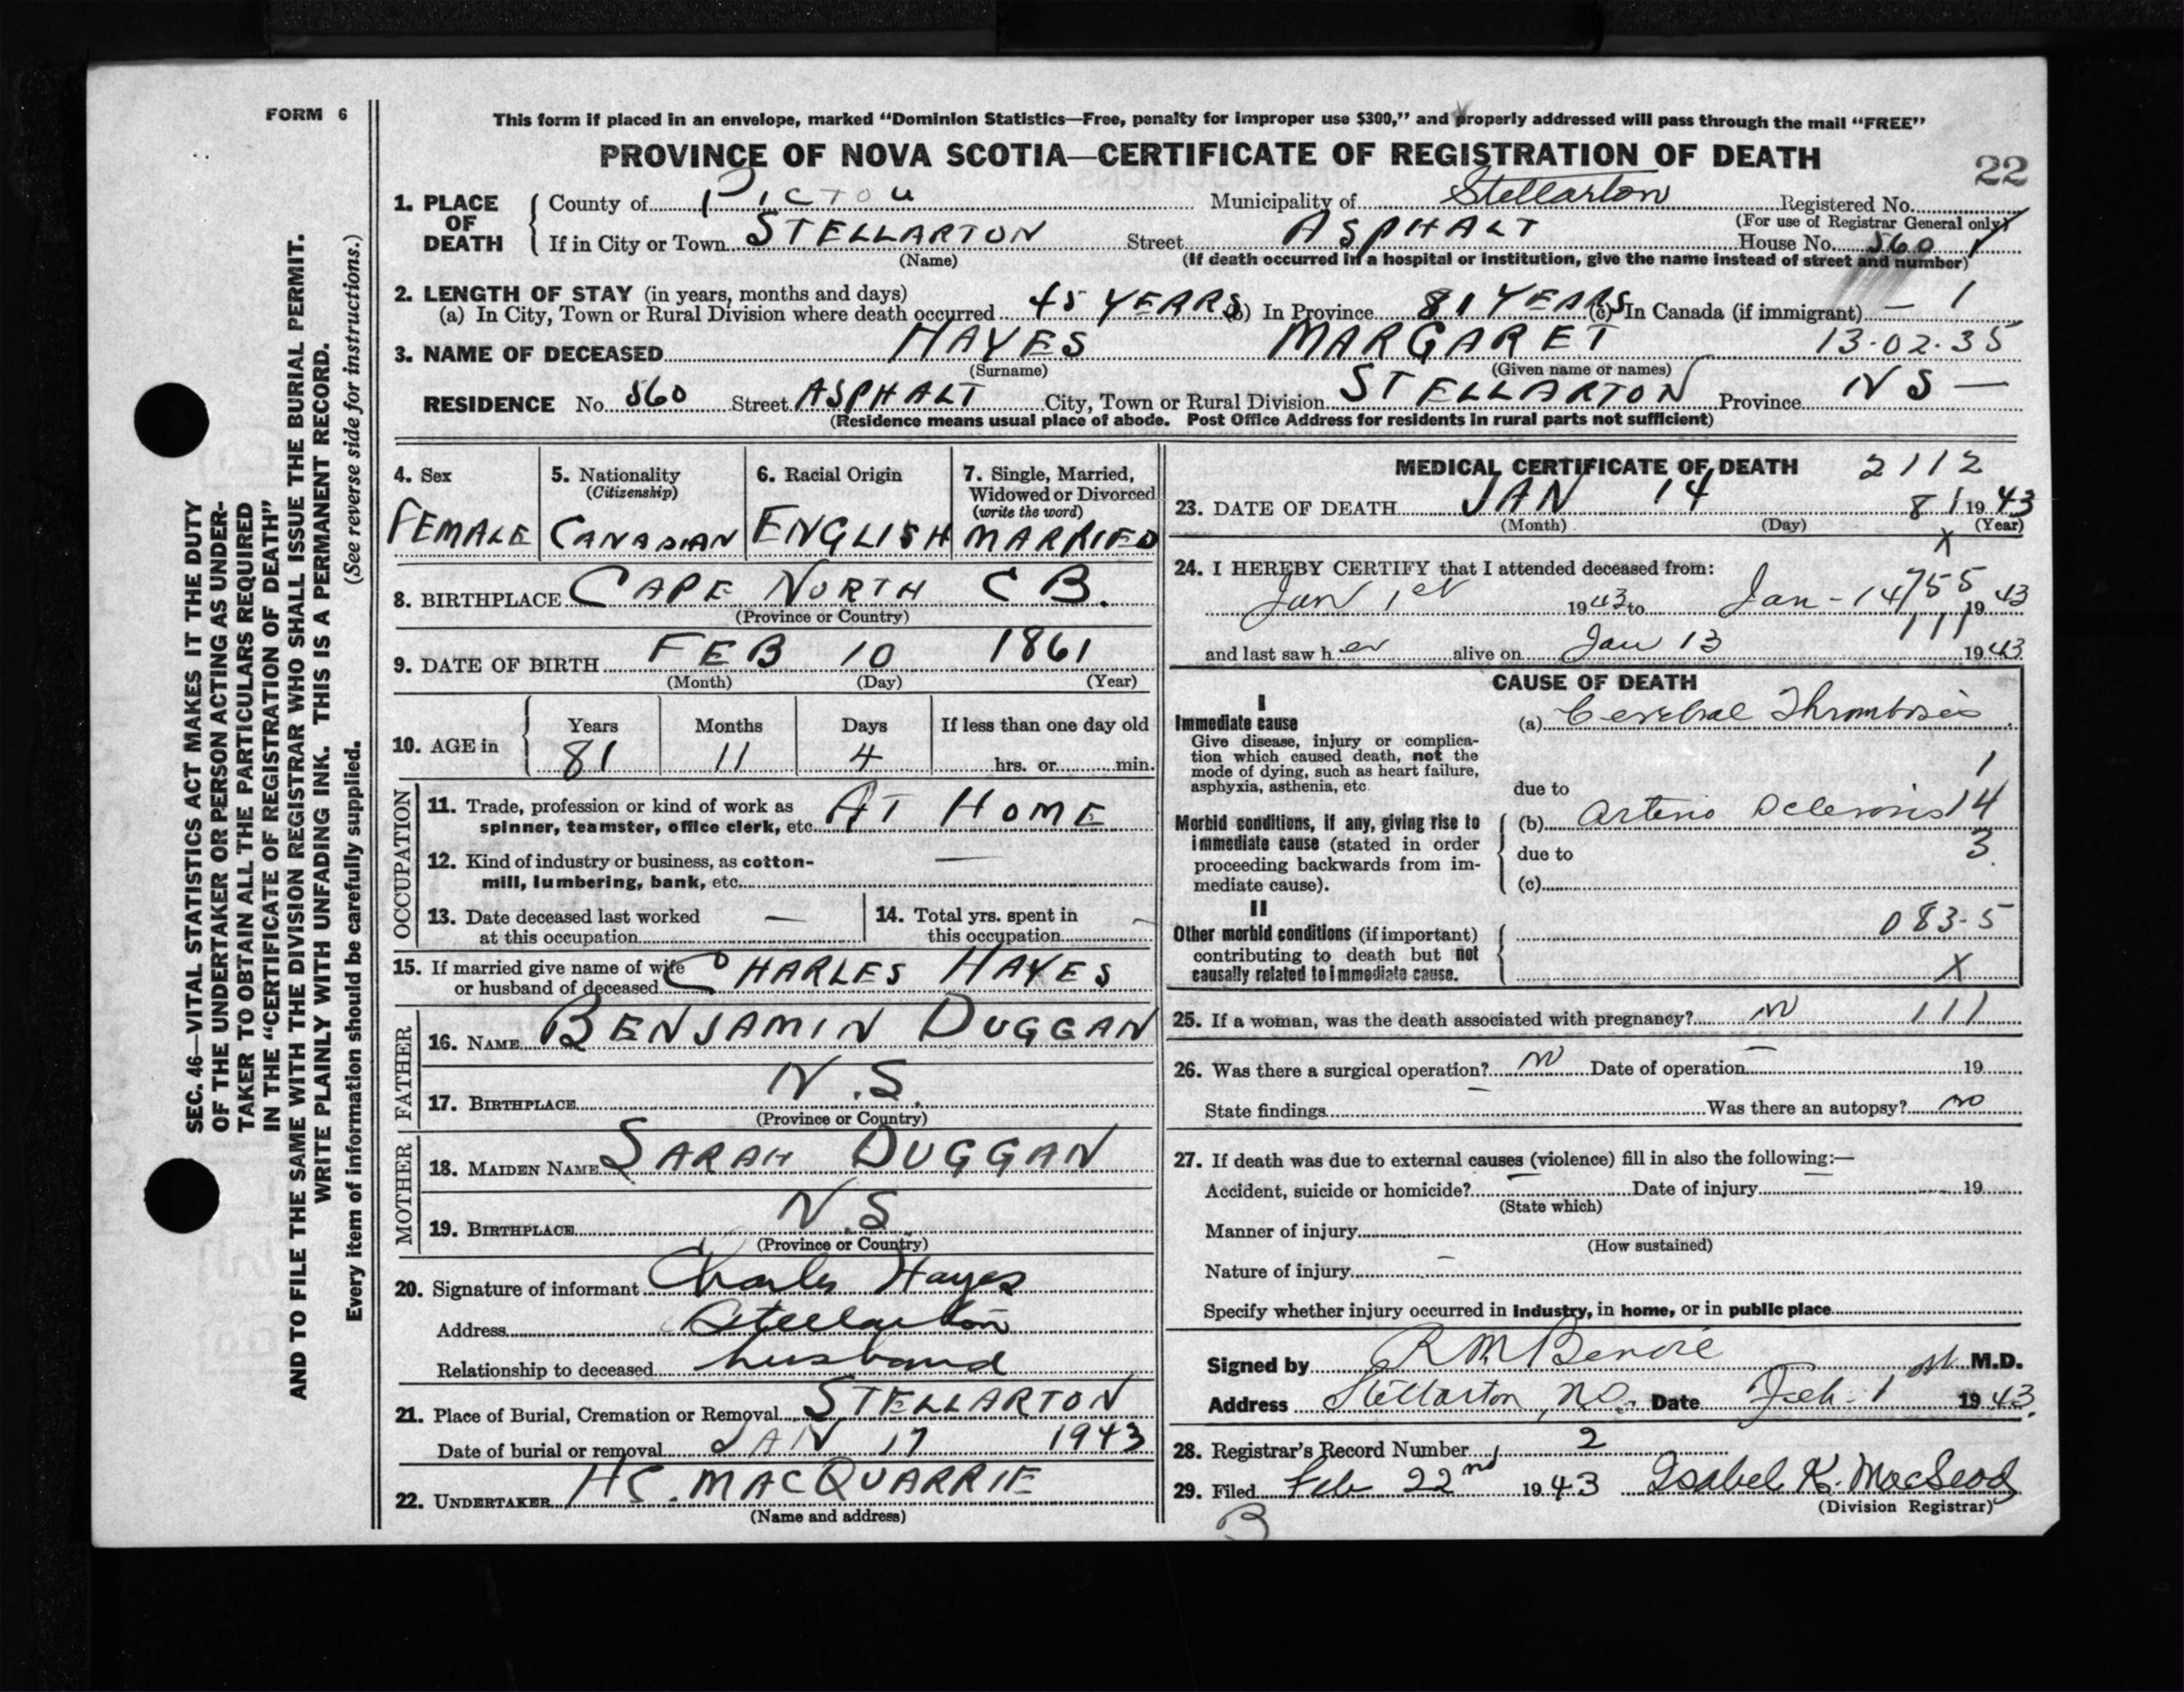 FORM 6
This form if placed in an envelope, marked “Dominion Statistics—Free, penalty for improper use $300,” and properly addressed will pass through the mail “FREE”
PROVINCE OF NOVA SCOTIA—CERTIFICATE OF REGISTRATION OF DEATH
22
1. PLACE OF DEATH
County of PICTOU Municipality of Stellarton Registered No.
(For use of Registrar General only)
If in City or Town STELLARTON Street ASPHALT House No. 560
(Name) (If death occurred in a hospital or institution, give the name instead of street and number)
2. LENGTH OF STAY (in years, months and days)
(a) In City, Town or Rural Division where death occurred 45 YEARS (b) In Province 81 YEARS (c) In Canada (if immigrant) — 1
3. NAME OF DECEASED HAYES MARGARET 13-02-35
(Surname) (Given name or names)
RESIDENCE No. 560 Street ASPHALT City, Town or Rural Division STELLARTON Province NS —
(Residence means usual place of abode. Post Office Address for residents in rural parts not sufficient)
4. Sex
FEMALE
5. Nationality
(Citizenship)
CANADIAN
6. Racial Origin
ENGLISH
7. Single, Married,
Widowed or Divorced
(write the word)
MARRIED
8. BIRTHPLACE CAPE NORTH C B.
(Province or Country)
9. DATE OF BIRTH FEB 10 1861
(Month) (Day) (Year)
10. AGE in
Years Months Days If less than one day old
81 11 4 hrs. or min.
OCCUPATION
11. Trade, profession or kind of work as
spinner, teamster, office clerk, etc. AT HOME
12. Kind of industry or business, as cotton-
mill, lumbering, bank, etc. —
13. Date deceased last worked
at this occupation —
14. Total yrs. spent in
this occupation —
15. If married give name of wife
or husband of deceased CHARLES HAYES
FATHER
16. NAME BENJAMIN DUGGAN
17. BIRTHPLACE N.S.
(Province or Country)
MOTHER
18. MAIDEN NAME SARAH DUGGAN
19. BIRTHPLACE N.S
(Province or Country)
20. Signature of informant Charles Hayes
Address Stellarton
Relationship to deceased husband
21. Place of Burial, Cremation or Removal STELLARTON
Date of burial or removal JAN 17 1943
22. UNDERTAKER HC. MACQUARRIE
(Name and address)
MEDICAL CERTIFICATE OF DEATH 2112
23. DATE OF DEATH JAN 14 81 1943
(Month) (Day) (Year)
X
24. I HEREBY CERTIFY that I attended deceased from:
Jan 1st 1943 to Jan - 14 755 1943
111
and last saw her alive on Jan 13 1943
CAUSE OF DEATH
I
Immediate cause
Give disease, injury or complica-
tion which caused death, not the
mode of dying, such as heart failure,
asphyxia, asthenia, etc.
(a) Cerebral Thrombosis
1
due to
Morbid conditions, if any, giving rise to
immediate cause (stated in order
proceeding backwards from im-
mediate cause).
(b) Arterio Sclerosis 14
due to 3
(c)
II
Other morbid conditions (if important)
contributing to death but not
causally related to immediate cause.
083-5
X
25. If a woman, was the death associated with pregnancy? no 111
26. Was there a surgical operation? no Date of operation — 19
State findings — Was there an autopsy? no
27. If death was due to external causes (violence) fill in also the following:—
Accident, suicide or homicide? — Date of injury — 19
(State which)
Manner of injury
(How sustained)
Nature of injury —
Specify whether injury occurred in industry, in home, or in public place
Signed by R M Benvie M.D.
Address Stellarton, N.S. Date Feb. 1st 1943.
28. Registrar's Record Number 2
29. Filed Feb 22nd 1943 Isabel K. MacLeod
(Division Registrar)
B
SEC. 46—VITAL STATISTICS ACT MAKES IT THE DUTY
OF THE UNDERTAKER OR PERSON ACTING AS UNDER-
TAKER TO OBTAIN ALL THE PARTICULARS REQUIRED
IN THE “CERTIFICATE OF REGISTRATION OF DEATH”
AND TO FILE THE SAME WITH THE DIVISION REGISTRAR WHO SHALL ISSUE THE BURIAL PERMIT.
WRITE PLAINLY WITH UNFADING INK. THIS IS A PERMANENT RECORD.
Every item of information should be carefully supplied. (See reverse side for instructions.)